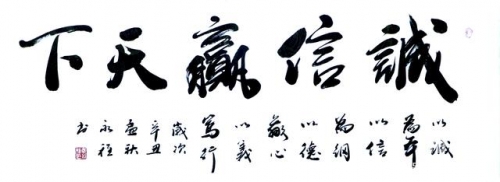 誠信贏天下
以誠
為本
以信
為綱
以德
心
以義
篤行
歲次
辛丑
孟秋
永
書